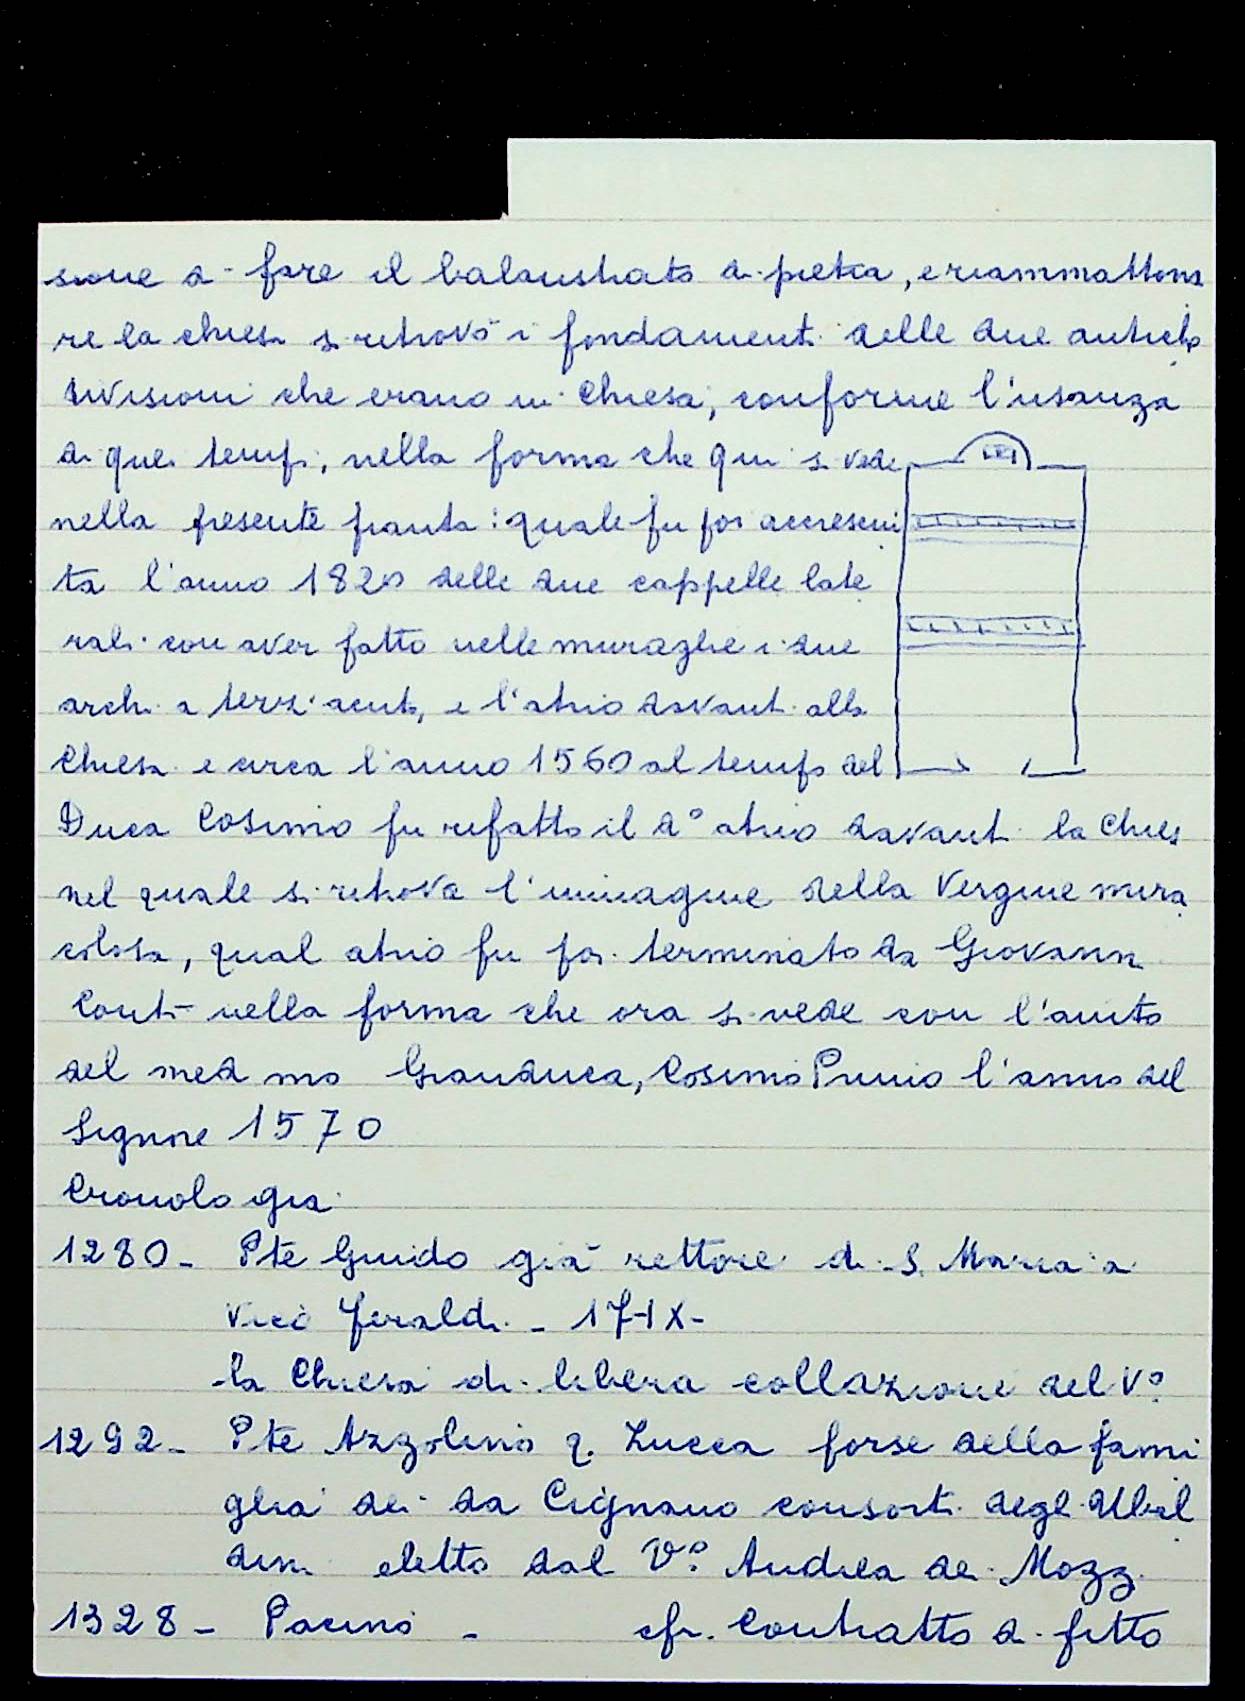 sione di fare il balaustrato di pietra, e riammattona
re la chiesa si ritrovò i fondamenti delle due antiche
divisioni che erano in Chiesa, conforme l'usanza
di quei tempi, nella forma che qui si vede
nella presente pianta: quale fu poi accresciu
ta l'anno 1820 delle due cappelle late
rali con aver fatto nelle muraglie i due
archi a terzi acuti, e l'atrio davanti alla
Chiesa e circa l'anno 1560 al tempo del
Duca Cosimo fu rifatto il do atrio davanti la Chies
nel quale si ritrova l'immagine della Vergine mira
colosa, qual atrio fu poi terminato da Giovanni
Conti nella forma che ora si vede con l'aiuto
del med mo Granduca, Cosimo Primo l'anno del
Signore 1570
Cronologia
1280 - Pte Guido già rettore di S. Maria a
Vico Feraldi - 17-IX-
la Chiesa di libera collazione del Vo
1292 - Pte Azzolino q. Lucca forse della fami
glia dei da Cignano consorti degli Ubal
dini eletto dal Vo Andrea dei Mozzi
1328 - Pacino - cfr. Contratto di fitto